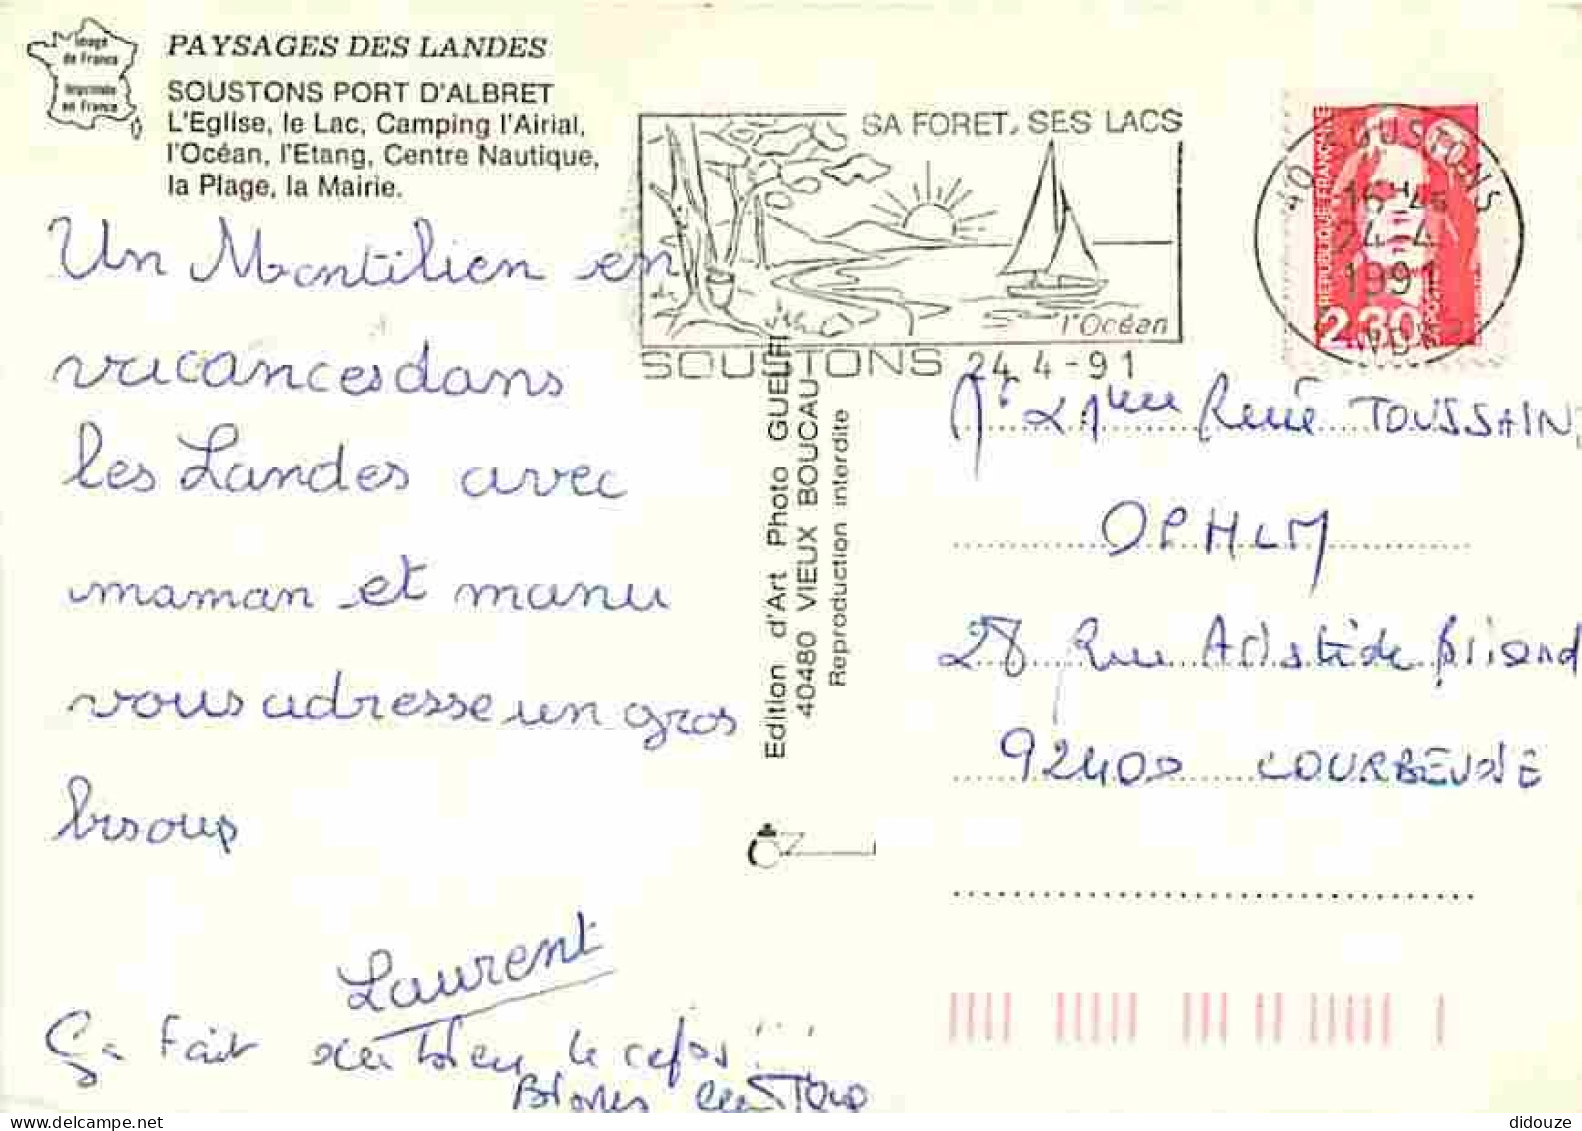 Image
de France
Imprimée
en France
PAYSAGES DES LANDES
SOUSTONS PORT D'ALBRET
L'Eglise, le Lac, Camping l'Airial,
l'Océan, l'Etang, Centre Nautique,
la Plage, la Mairie.
Un Montilien en
vacances dans
les Landes avec
maman et manu
vous adresse un gros
bisous
Laurent
Ça fait du bien le repos !!!
SA FORET, SES LACS
l'Océan
SOUSTONS 24 4-91
40 SOUSTONS
16 H
24-4
1991
REPUBLIQUE FRANÇAISE
2,30
Edition d'Art Photo GUEUFI
40480 VIEUX BOUCAU
Reproduction interdite
René TOUSSAIN
OPHLM
28 Rue Aristide Briand
92400 COURBEVOIE
didouze